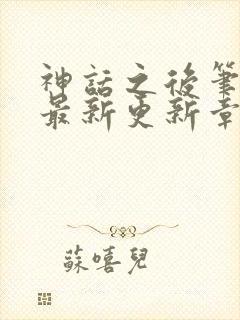 神話之後筆
最新更新章
蘇嘻兒